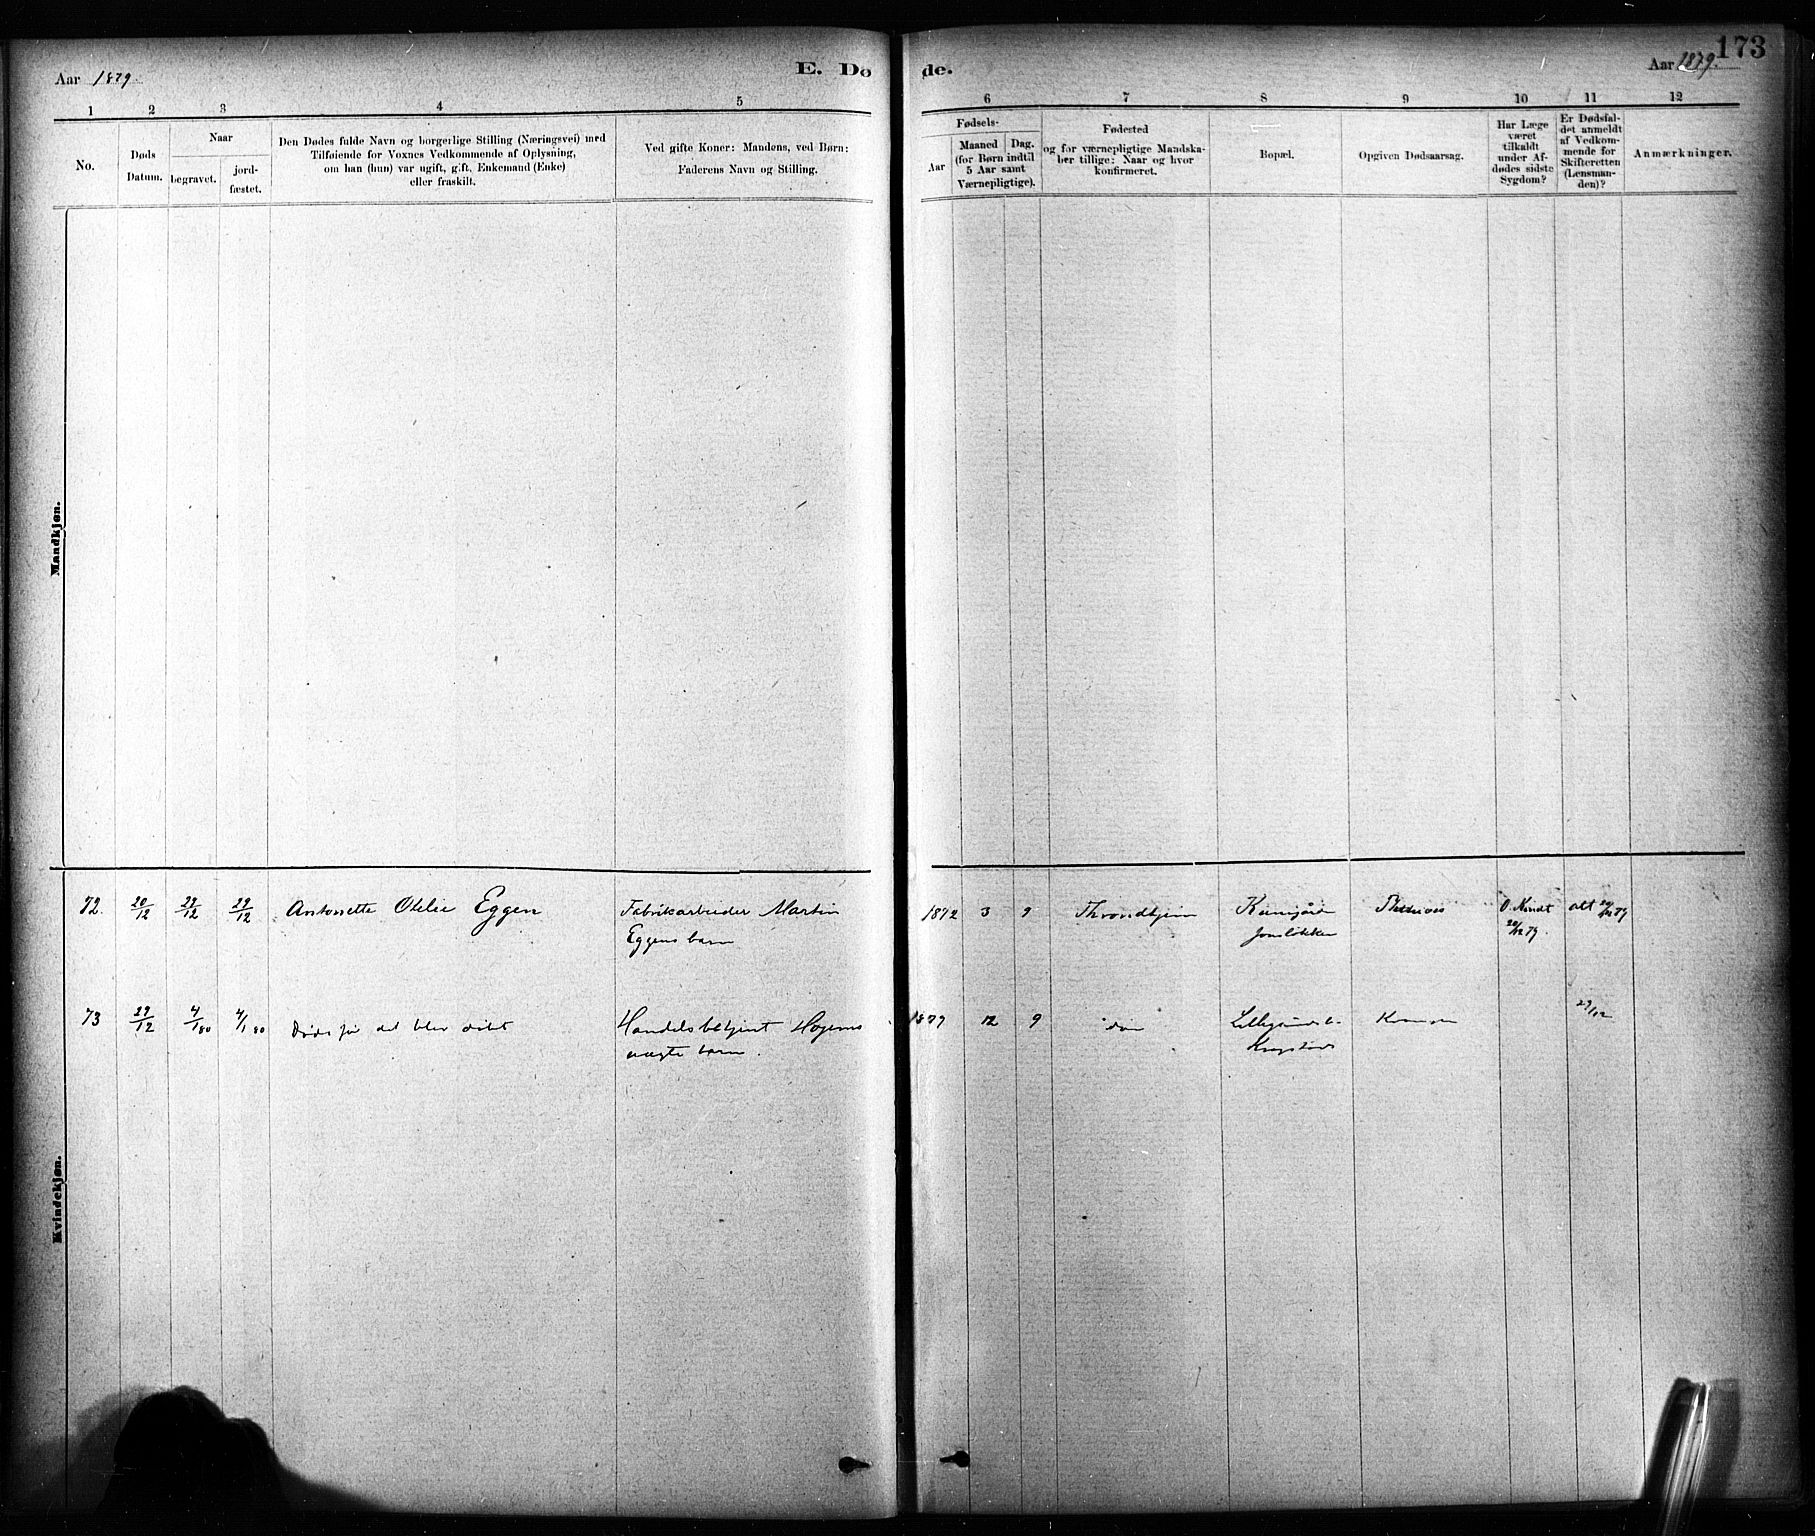 173
Aar 1879.
E. Dø
de.
Aar 1879.
1 2 3 4 5
6 7 8 9 10 11 12
No.
Døds
Datum.
Naar
begravet.
jord-
fæstet.
Den Dødes fulde Navn og borgerlige Stilling (Næringsvei) med
Tilføiende for Voxnes Vedkommende af Oplysning,
om han (hun) var ugift, gift, Enkemand (Enke)
eller fraskilt.
Ved gifte Koner: Mandens, ved Børn:
Faderens Navn og Stilling.
Fødsels-
Aar
Maaned
(for Børn indtil
5 Aar samt
Værnepligtige).
Dag.
Fødested
og for værnepligtige Mandska-
ber tillige: Naar og hvor
konfirmeret.
Bopæl.
Opgiven Dødsaarsag.
Har Læge
været
tilkaldt
under Af-
dødes sidste
Sygdom?
Er Dødsfal-
det anmeldt
af Vedkom-
mende for
Skifteretten
(Lensman-
den)?
Anmærkninger.
Mandkjøn.
72. 20/12 29/12 29/12 Antonette Otelie Eggen Fabrikarbeider Martin 1872 3 9 Throndhjem
Eggens barn
73 29/12 4/1 80 4/1 80 Døds før det blev døbt Handelsbetjent 1879 12 9 29/12
uægte barn.
Kvindekjøn.